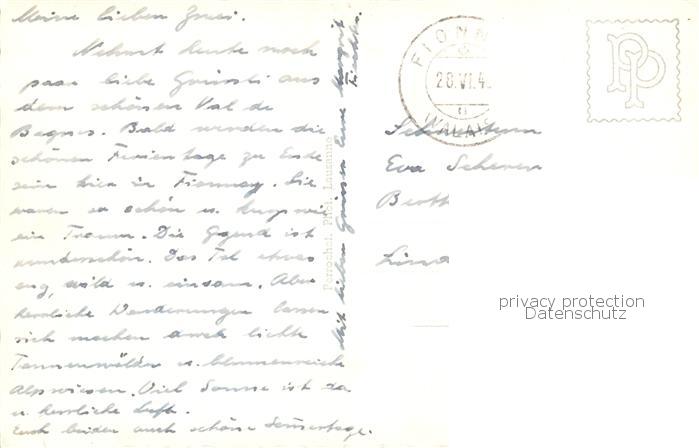 Meine lieben Zwei.
Nehmt heute noch
paar liebe Grüssli aus
dem schönen Val de
Bagnes. Bald werden die
schönen Ferientage zu Ende
sein hier in Fionnay. Sie
waren so schön u. kurz wie
ein Traum. Die Gegend ist
wunderschön. Das Tal etwas
eng, wild u. einsam. Aber
herrliche Wanderungen lassen
sich machen durch lichte
Tannenwälder u. blumenreiche
Alpwiesen. Viel Sonne ist da
u. herrliche Luft.
Euch beiden auch schöne Sommertage.
Mit lieben Grüssen Eure Margrit
Perrochet, Phot. Lausanne
FIONN
28.VI.4
WALLIS
PP
Eva Scherer
privacy protection
Datenschutz